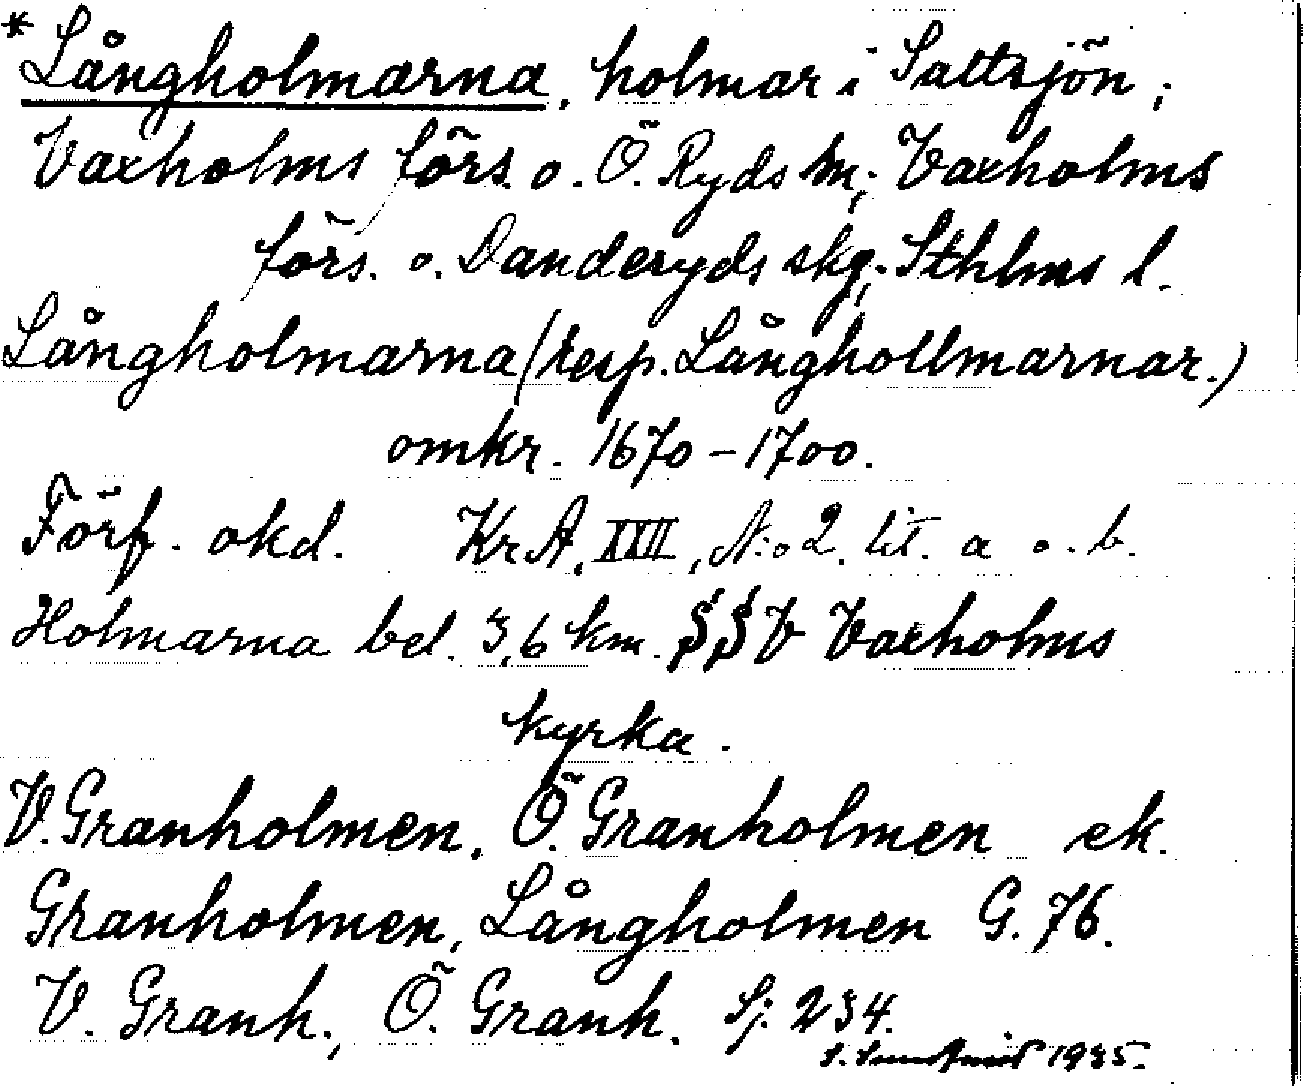 *Långholmarna, holmar i Saltsjön;
Vaxholms förs. o. Ö. Ryds sn; Vaxholms
förs. o. Danderyds skg; Sthlms l.
Långholmarna (resp. Långhollmarnar.)
omkr. 1670-1700.
Förf. okd. KrA, XXII, N:o 2. lit. a o. b.
Holmarna bel. 3,6 km. SSV Vaxholms
kyrka.
V. Granholmen, Ö. Granholmen ek.
Granholmen, Långholmen G. 76.
V. Granh., Ö. Granh. Sj. 234.
1935.